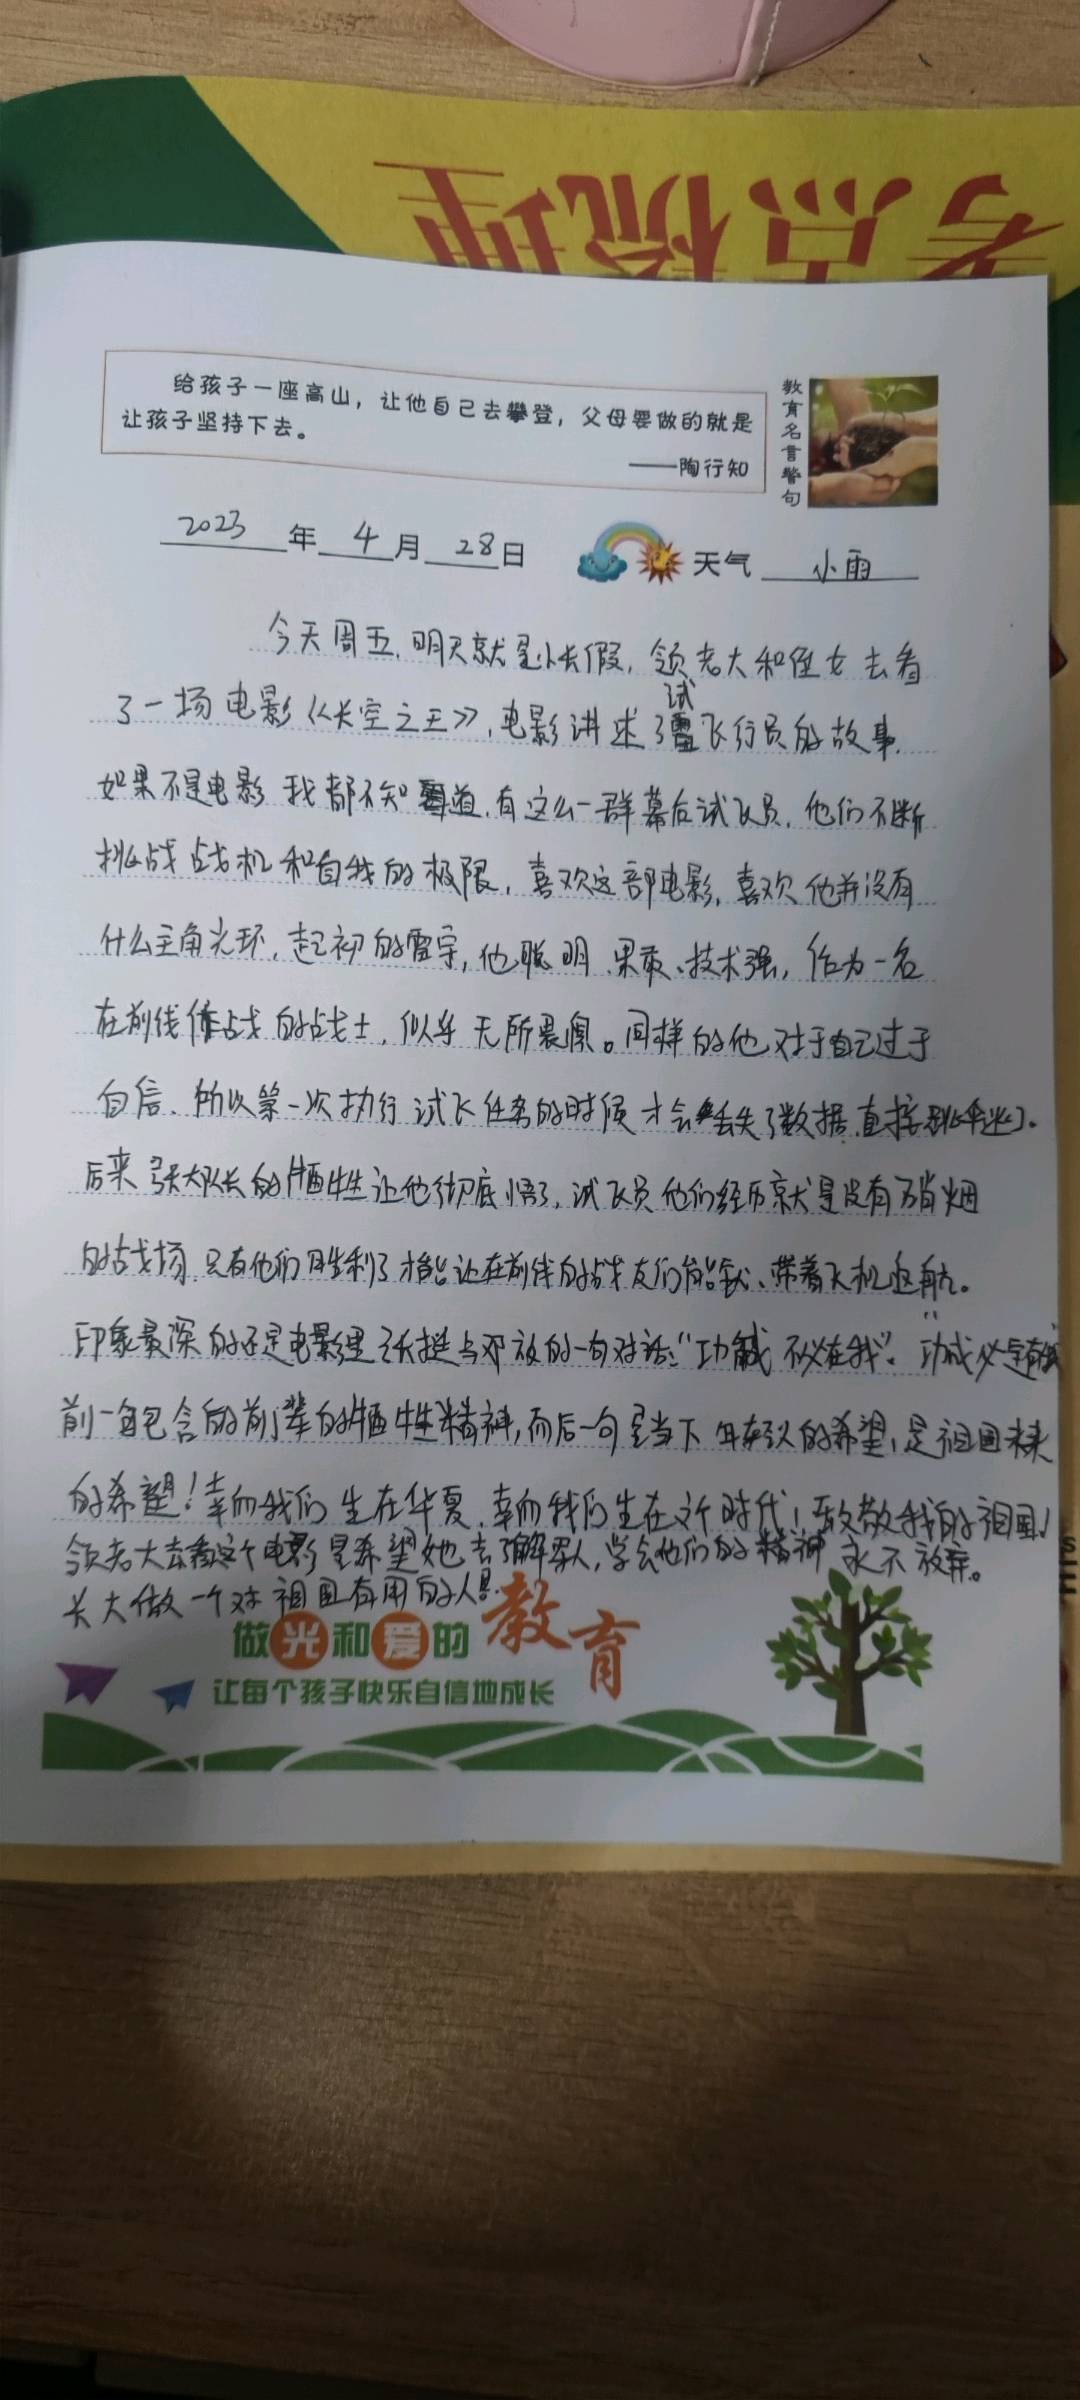 考点梳理
给孩子一座高山，让他自己去攀登，父母要做的就是
让孩子坚持下去。
——陶行知
教育名言警句
2023年4月28日 天气 小雨
今天周五，明天就是小长假，领老大和侄女去看
了一场电影《长空之王》，电影讲述了试飞行员的故事，
如果不是电影 我都不知道，有这么一群幕后试飞员，他们不断
挑战战机和自我的极限，喜欢这部电影，喜欢他并没有
什么主角光环，起初的雷宇，他聪明、果敢、技术强，作为一名
在前线作战的战士，似乎无所畏惧。同样的他对于自己过于
自信、所以第一次执行试飞任务的时候才会丢失了数据，直接跳伞逃了。
后来张大队长的牺牲让他彻底悟了，试飞员他们经历就是没有硝烟
的战场，只有他们胜利了才能让在前线的战友们能、带着飞机返航。
印象最深的还是电影里张挺与邓放的一句对话：“功成不必在我”。“功成必定有我”
前一句包含的前辈的牺牲精神，而后一句是当下年轻人的希望，是祖国未来
的希望！幸而我们生在华夏，幸而我们生在这个时代！致敬我的祖国！
领老大去看这个电影是希望她去了解军人，学会他们的精神 永不放弃。
长大做一个对祖国有用的人。
做光和爱的教育
让每个孩子快乐自信地成长